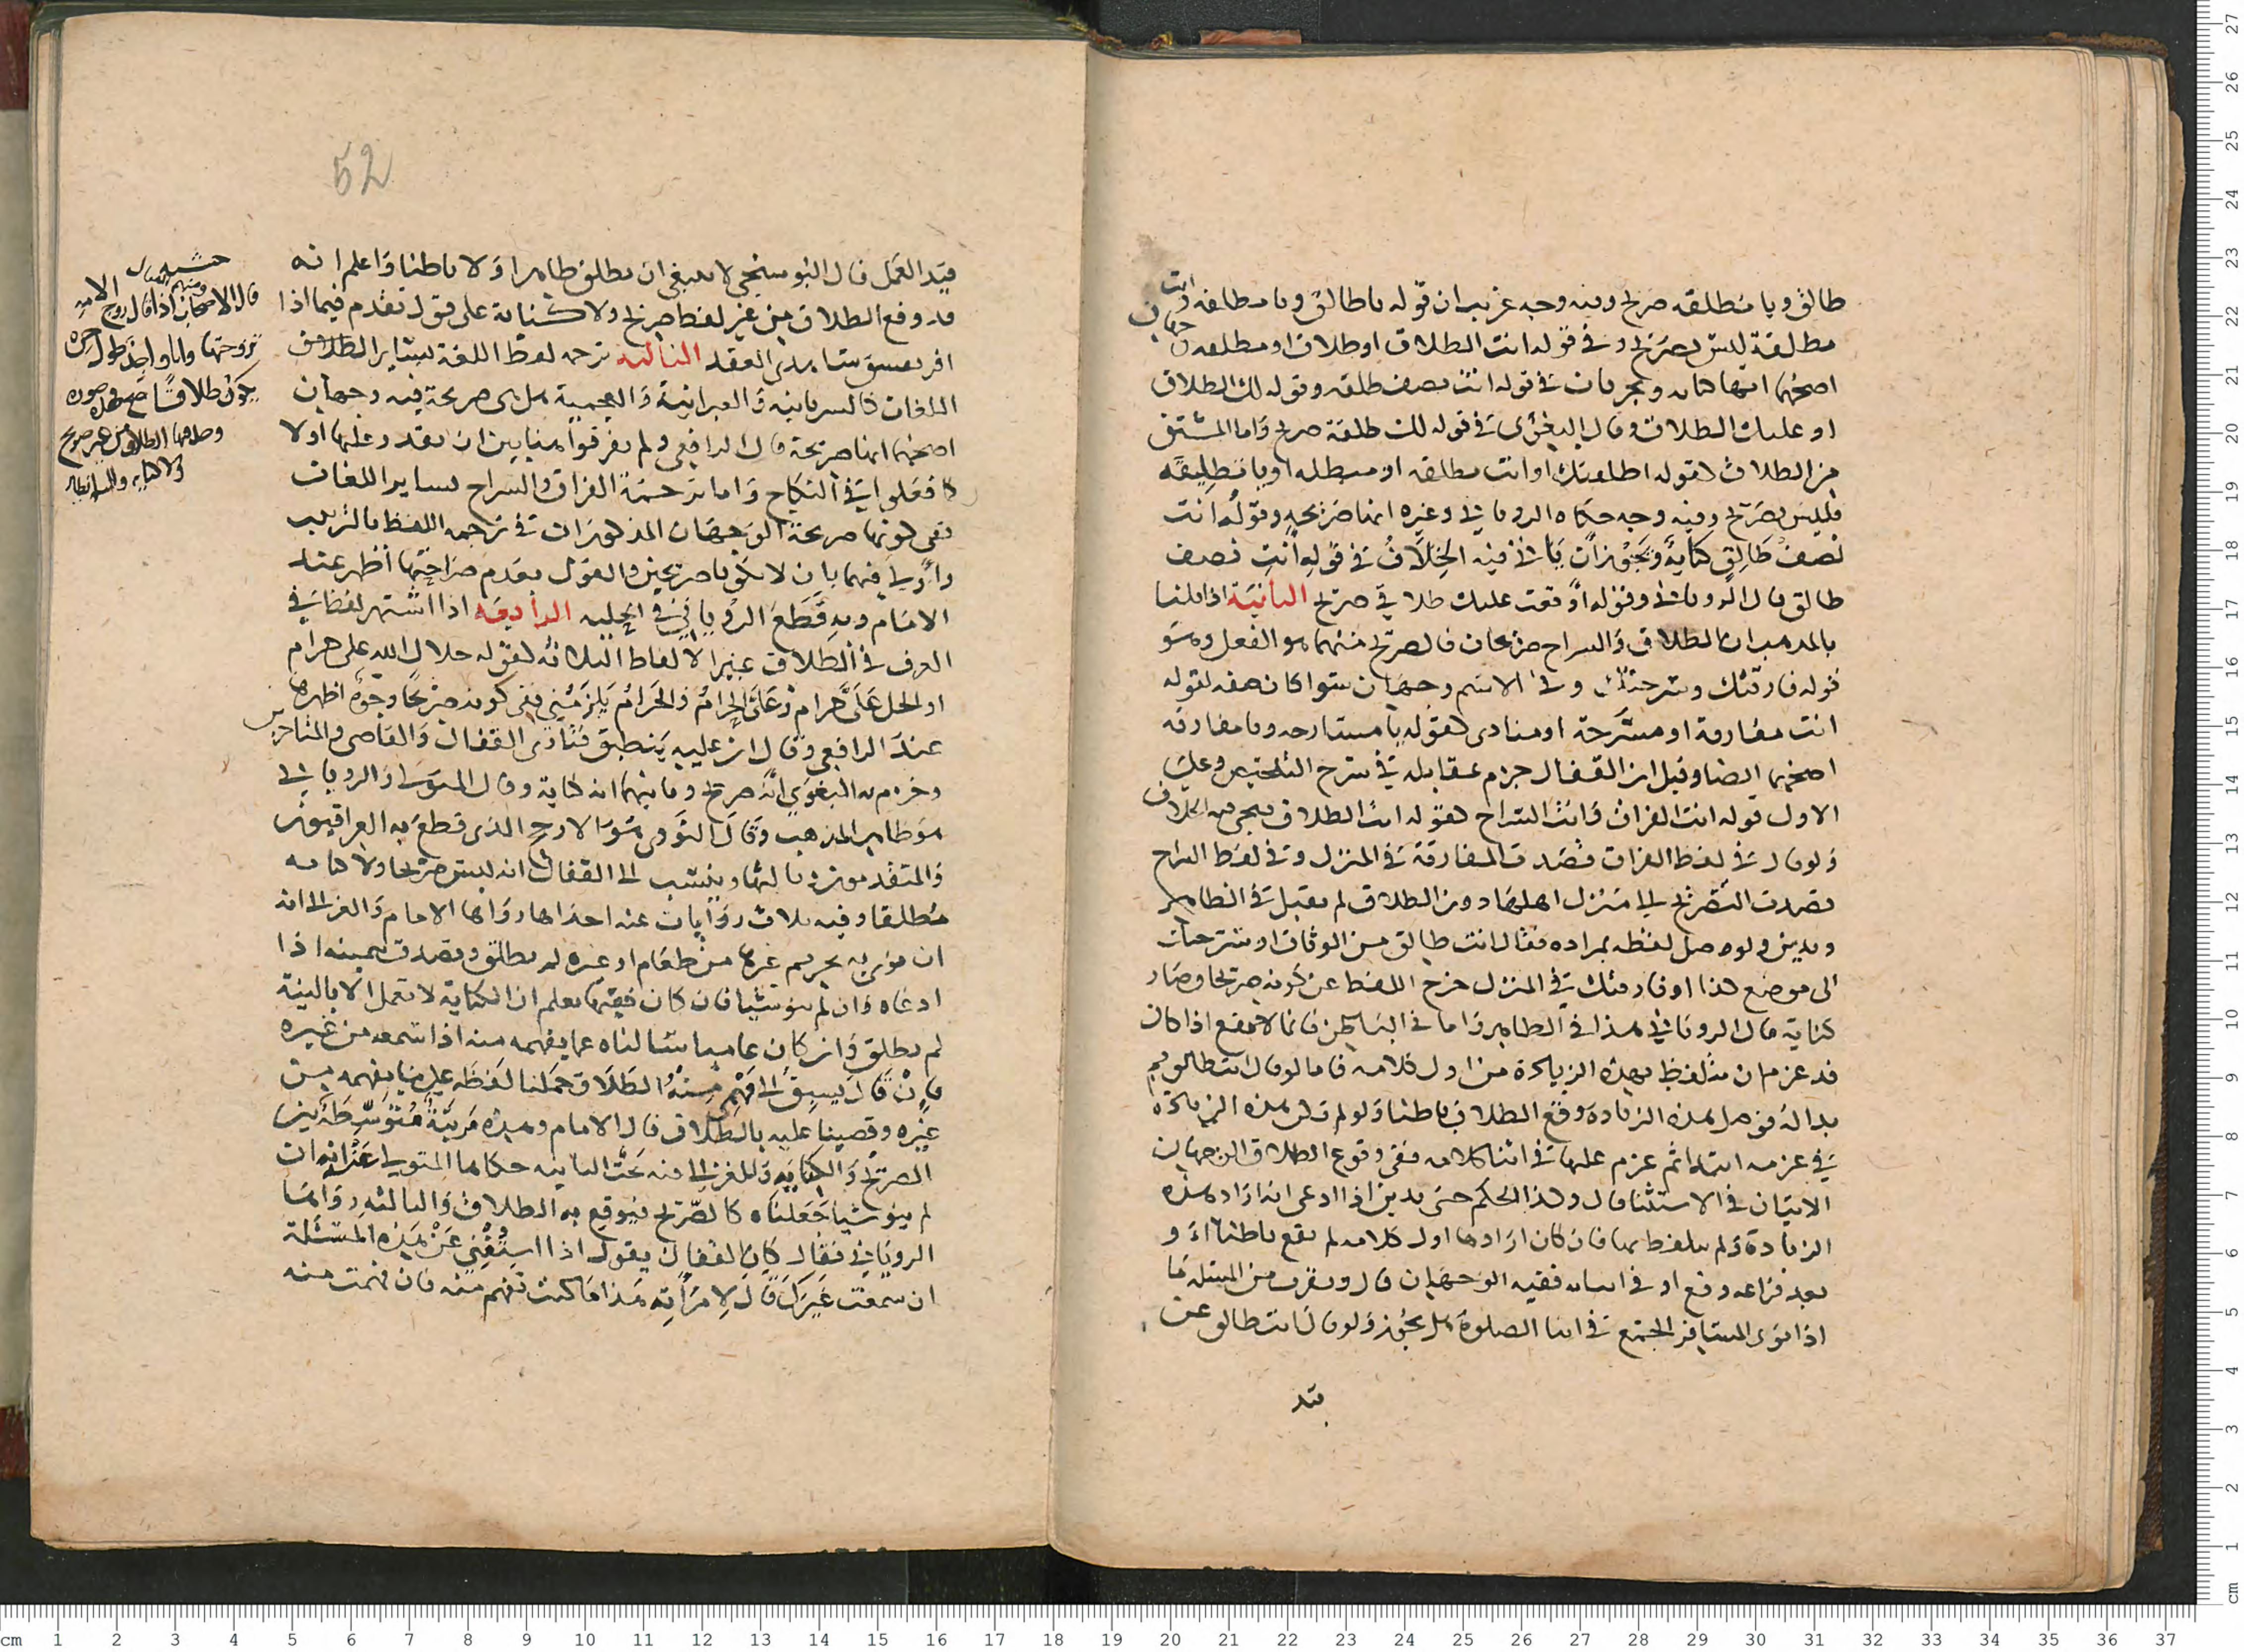 طالق ويا مطلقه صريح وفيه وجه غريب ان قوله يا طالق ويا مطلقه وانت
مطلقة ليس بصريح وفى قوله انت الطلاق او طلاق او مطلقه وجهان
اصحهما انها كنايه ويجريان فى قوله انت نصف طلقه وقوله لك الطلاق
او عليك الطلاق وقال البغوى فى قوله لك طلقة صريح واما المشتق
من الطلاق كقوله اطلقتك او انت مطلقه او يا مطلقه
فليس بصريح وفيه وجه حكاه الرويانى وغيره انها صريحه وقوله انت
نصف طالق كناية ويجوز ان ياتى فيه الخلاف فى قوله انت نصف
طالق قال الرويانى وقوله اوقعت عليك طلاقى صريح الثانية اذا قلنا
بالمذهب ان الطلاق والسراح صريحان فالصريح منهما هو الفعل وهو
قوله فارقتك وسرحتك وفى الاسم وجهان سوا كان صفه لقوله
انت مفارقة او مسرحة او منادى كقوله يا مسرحه ويا مفارقه
اصحهما ايضا وقيل ان القفال جزم بمقابله فى شرح التلخيص وعلى
الاول قوله انت الفراق وانت السراح كقوله انت الطلاق فيجى فيه الخلاف
ولو قال فى لفظ الفراق قصدت المفارقة فى المنزل وفى لفظ السراح
قصدت التسريح الى منزل اهلها دون الطلاق لم يقبل فى الظاهر
ويدين ولو وصل لفظه بمراده فقال انت طالق من الوثاق او سرحتك
الى موضع كذا او فارقتك فى المنزل خرج اللفظ عن كونه صريحا وصار
كناية قال الرويانى هذا فى الظاهر واما فى الباطن فانما لا يقع اذا كان
قد عزم ان يتلفظ بهذه الزيادة من اول كلامه فاما لو قال انت طالق ثم
بدا له فوصل بهذه الزيادة وقع الطلاق باطنا ولو لم تكن هذه الزيادة
فى عزمه ابتدا ثم عزم عليها فى اثنا كلامه ففى وقوع الطلاق الوجهان
الاتيان فى الاستثنا قال وكذا الحكم حتى يدين اذا ادعى انه اراد هذه
الزيادة ولم يتلفظ بها فان كان ارادها اول كلامه لم يقع باطنا او
بعد فراغه وقع او فى اثنائه ففيه الوجهان قال ويقرب من المسله ما
اذا نوى المسافر الجمع فى اثنا الصلوة هل يجوز ولو قال انت طالق من
قيد
52
قيد العمل قال البوسنجى لا ينبغى ان يطلق ظاهرا ولا باطنا واعلم انه
قد وقع الطلاق من غير لفظ صريح ولا كناية على قول تقدم فيما اذا
اقر بفسق شاهدى العقد الثالثه ترجمه لفظ اللغة بسائر الطلاق
اللغات كالسريانيه والعبرانية والعجمية هل هى صريحة فيه وجهان
اصحهما انها صريحة قال الرافعى ولم يفرقوا هنا بين ان يقدر عليها اولا
كما فعلوا فى النكاح واما ترجمة الفراق والسراح بساير اللغات
ففى كونها صريحة الوجهان المذكوران فى ترجمه اللفظ بالترتيب
واولى فيهما بان لا يكونا صريحين والقول بعدم صراحتها اظهر عند
الامام وبه قطع الرويانى فى الحليه الرابعه اذا اشتهر لفظ فى
العرف فى الطلاق غير الالفاظ الثلاثه كقوله حلال الله على حرام
او الحل على حرام وعلى الحرام والحرام يلزمنى ففى كونه صريحا وجوه اظهرها
عند الرافعى وقال ان عليه ينطبق فتاوى القفال والقاضى والمتاخرين
وجزم به البغوى انه صريح وثانيهما انه كناية وقال المتولى والرويانى
هو ظاهر المذهب وقال النووى هو الارجح الذى قطع به العراقيون
والمتقدمون وثالثها وينسب الى القفال انه ليس صريحا ولا كنايه
مطلقا وفيه ثلاث روايات عنه احداها رواها الامام والغزالى انه
ان نوى به تحريم غيرها من طعام او غيره لم يطلق ويصدق بيمينه اذا
ادعاه وان لم ينو شيا فان كان فقيها يعلم ان الكناية لا تعمل الا بالنية
لم يطلق وان كان عاميا سالناه عما يفهمه منه اذا سمعه من غيره
فان قال يسبق الى فهمى منه الطلاق حملنا لفظه على ما يفهمه من
غيره وقضينا عليه بالطلاق قال الامام وهذه مرتبة متوسطة بين
الصريح والكنايه وللغزالى فيه بحث الثانيه حكاها المتولى عنه انه ان
لم ينو شيا جعلناه كالصريح فيوقع به الطلاق والثالثه رواها
الرويانى فقال كان القفال يقول اذا استفتى عن هذه المسئلة
ان سمعت غيرك قال لامراته هذا ما كنت تفهم منه فان فهمت منه
حشيه
قال الاصحاب اذا قال زوج الامه
تزوجتها وانا واجد طول حره
يكون طلاقا صورة
وصل فيها الطلاق من غير صريح
ولا كنايه والله